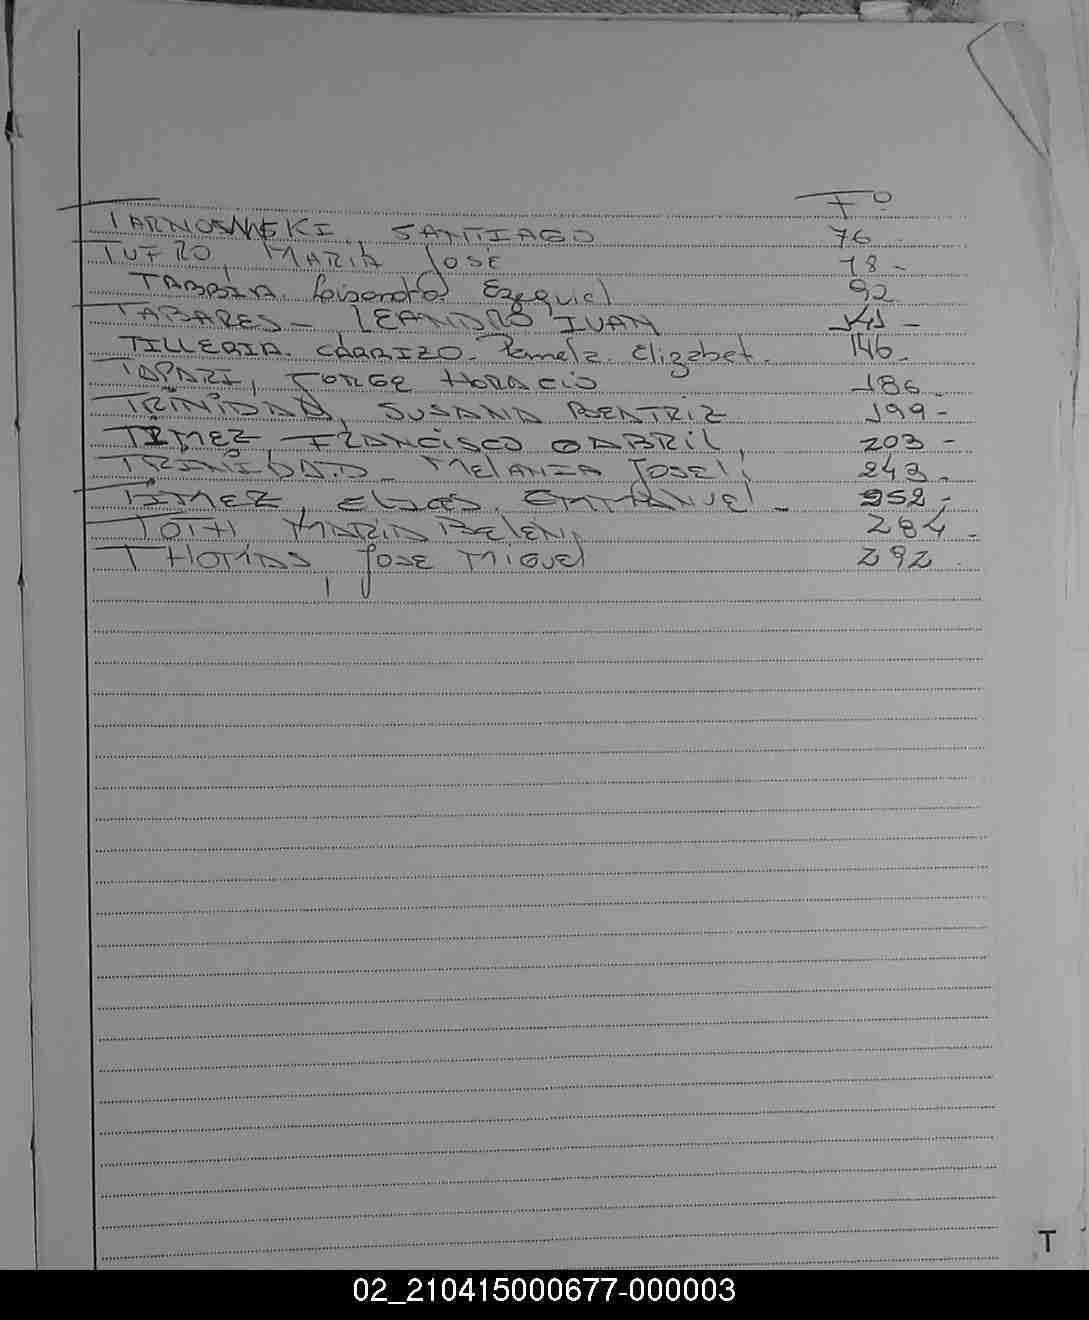 Fº
TARNOSWSKI, SANTIAGO 76 -
TUFRO, MARIA JOSÉ 78 -
TABBIA. Ezequiel 92
TABARES - LEANDRO IVAN 141 -
TILLERIA. CARRIZO. Pamela. Elizabet. 146.
TAPARI, JORGE HORACIO 186
TRINIDAD, SUSANA BEATRIZ 199 -
TIMEZ, FRANCISCO GABRIL, 203 -
TRINIDAD - MELANIA JOSELI 243 -
TIMEZ, ELIAS, EMMANUEL - 252 -
TOTH MARIA BELEN, 284 -
THOMAS, JOSE MIGUEL 292
T
02_210415000677-000003